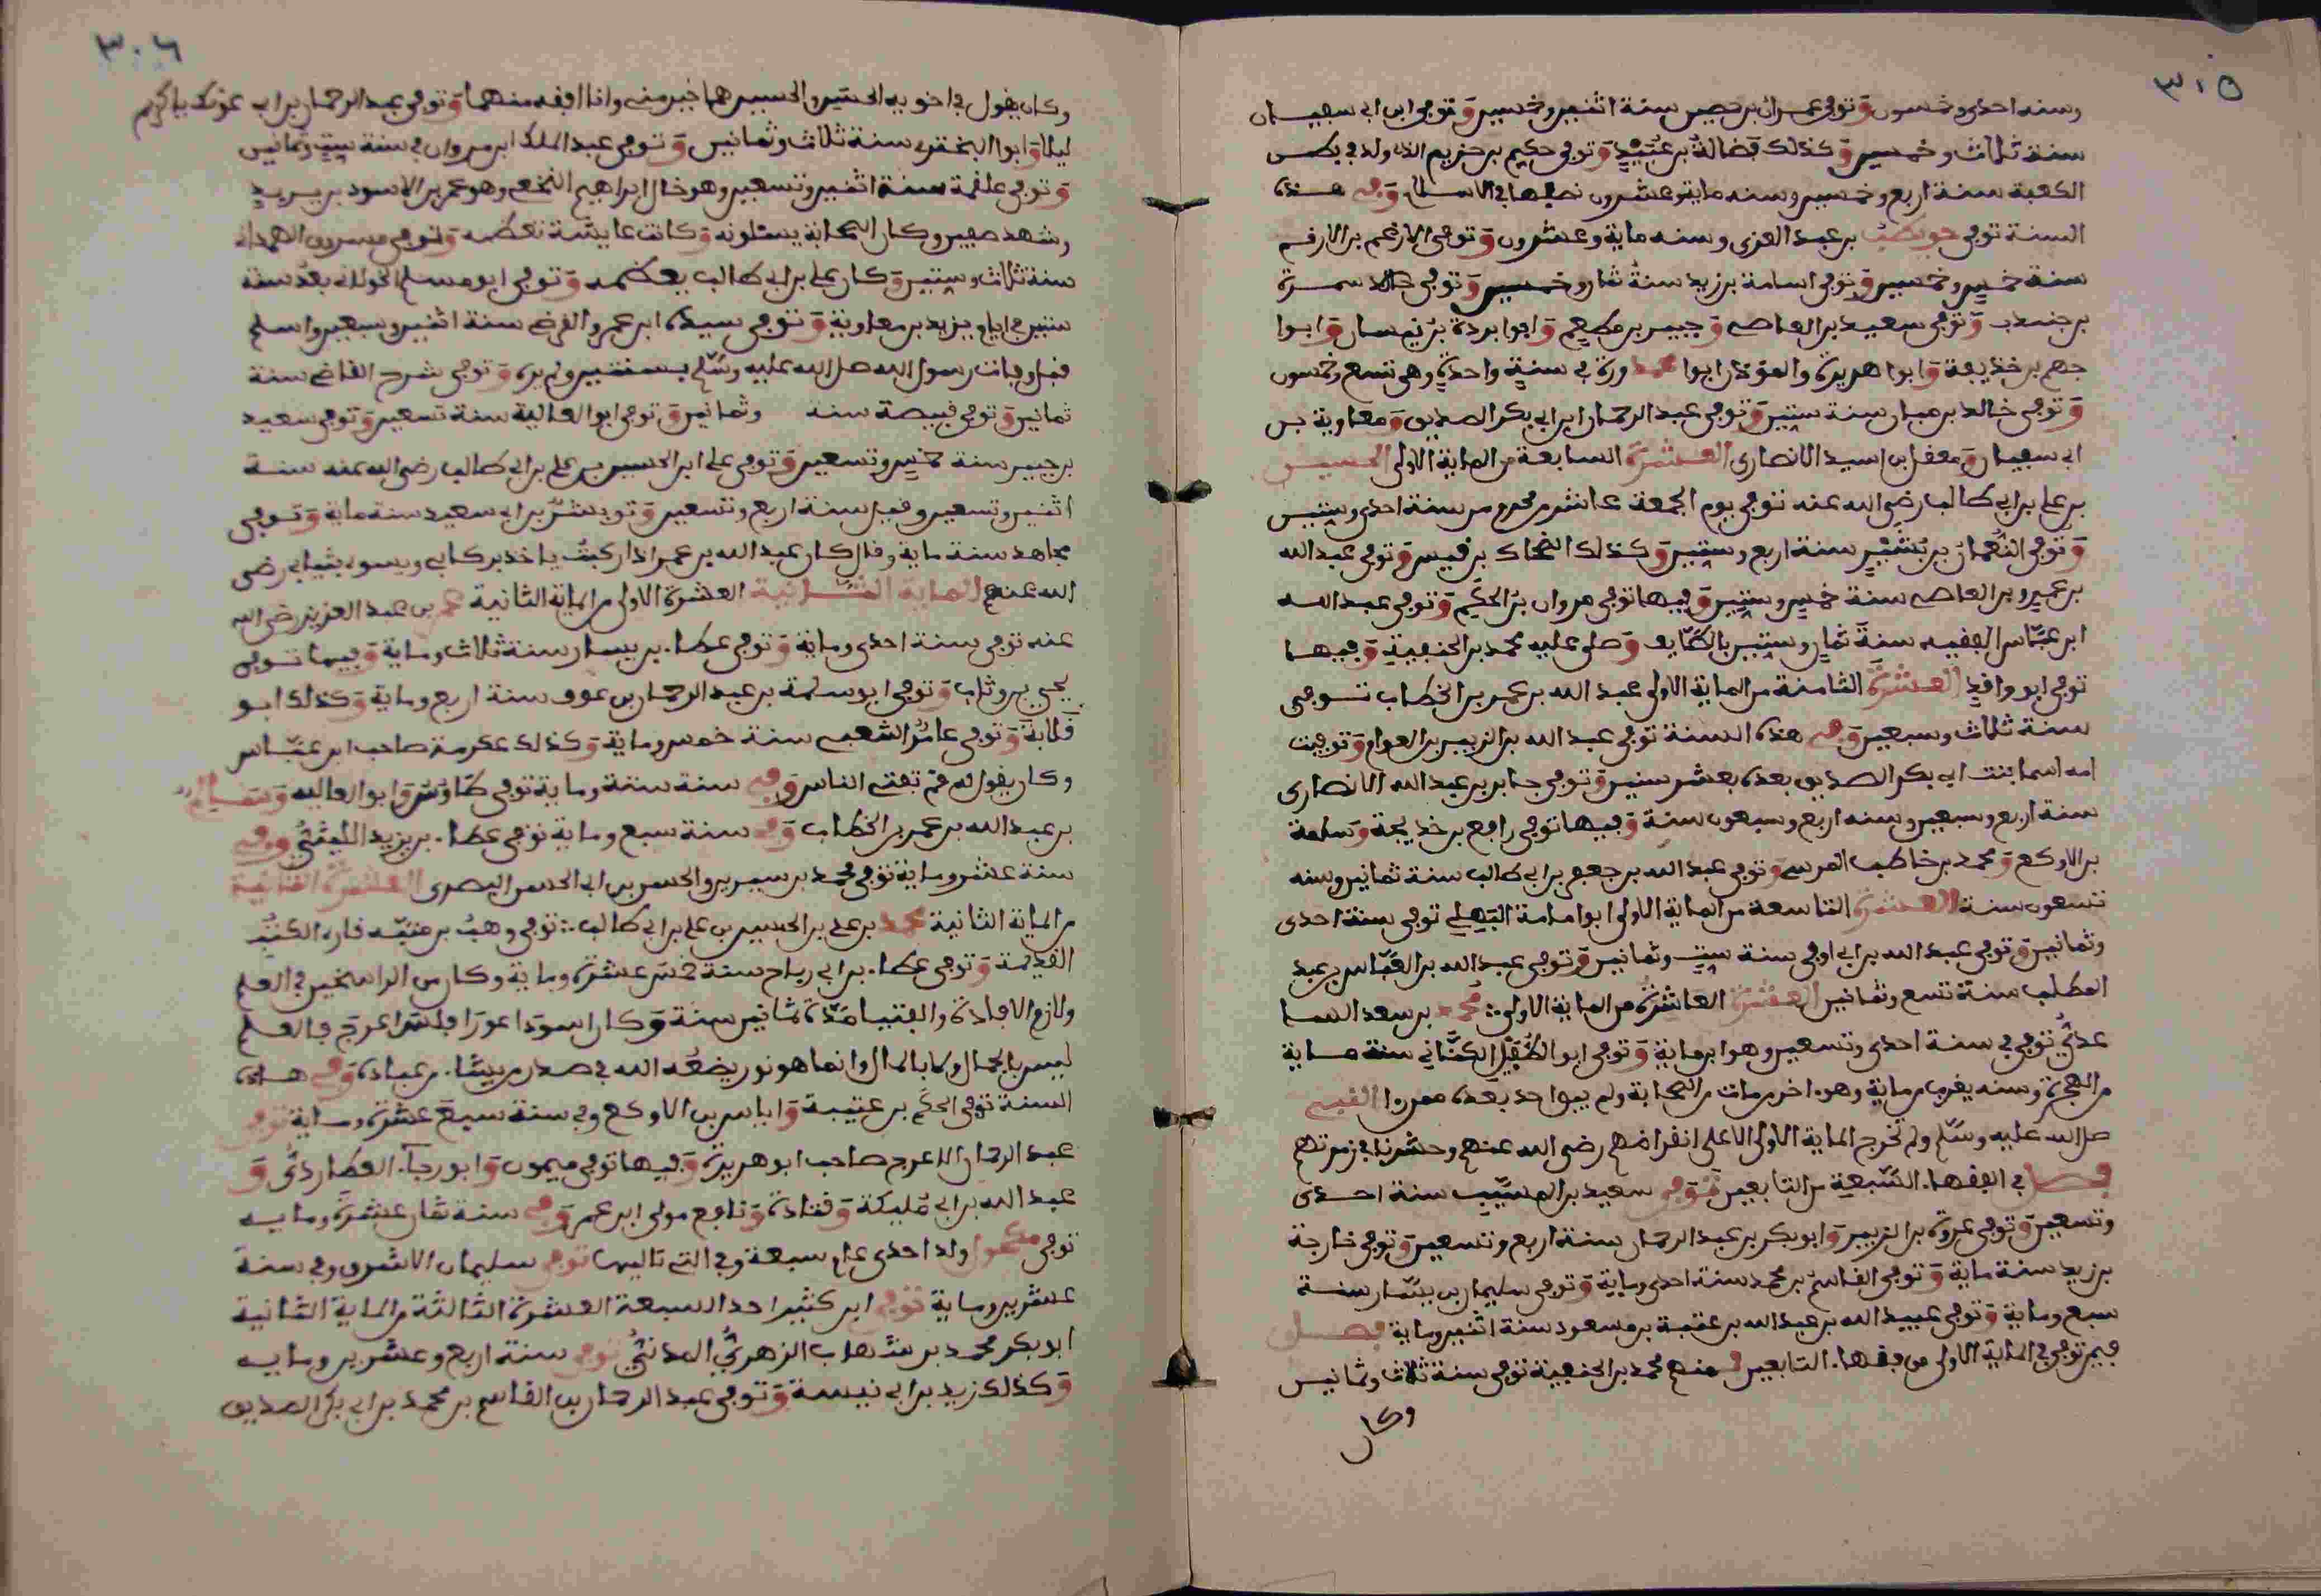 ٣٠٥
وسنه احدى وخمسون وتوفى عمران بن حصين سنة اثنين وخمسين وتوفى ابن ابي سفيان
سنة ثلاث وخمسين وكذلك فضالة بن عبيد وتوفى حكيم بن حزيم الذى ولد في بطن
الكعبة سنة اربع وخمسين وسنه ماية وعشرون نصفها في الاسلام وفى هذه
السنة توفى حويطب بن عبد العزى وسنه ماية وعشرون وتوفى الارقم بن الارقم
سنة خمس وخمسين وتوفى اسامة بن زيد سنة ثمان وخمسين وتوفى خالد سمرة
بن جندب وتوفى سعيد بن العاصى وجبير بن مطعم وابوا بردة بن نيسان وابوا
جهم بن حذيفة وابوا هريرة والموذن ابوا محذورة في سنة واحدة وهي تسع وخمسون
وتوفى خالد بن سنة ستين وتوفى عبد الرحمان ابن ابي بكر الصديق ومعاوية بن
ابي سفيان ومعقل بن اسيد الانصارى العشرة السابعة من الماية الاولى الحسين
بن علي بن ابي طالب رضى الله عنه توفى يوم الجمعة عاشر محرم من سنة احدى وستين
وتوفى النعمان بن بشير سنة اربع وستين وكذلك الضحاك بن قيس وتوفى عبد الله
بن عمرو بن العاصى سنة خمس وستين وفيها توفى مروان بن الحكم وتوفى عبد الله
ابن عباس الفقيه سنة ثمان وستين بالطايف وصلى عليه محمد بن الحنفية وفيها
توفى ابو واقد العشرة الثامنة من الماية الاولى عبد الله بن عمر بن الخطاب توفى
سنة ثلاث وسبعين وفى هذه السنة توفى عبد الله بن الزبير بن العوام وتوفيت
امه اسما بنت ابي بكر الصديق بعده بعشر سنين وتوفى جابر بن عبد الله الانصارى
سنة اربع وسبعين وسنه اربع وسبعون سنة وفيها توفى رافع بن خديجة وسلمة
بن الاوكع ومحمد بن خاطب وتوفى عبد الله بن جعفر بن ابي طالب سنة ثمانين وسنه
تسعون سنة العشرة التاسعة من الماية الاولى ابوا مامة البهلي توفى سنة احدى
وثمانين وتوفى عبد الله بن ابي اوفى سنة ست وثمانين وتوفى عبد الله بن العباس بن عبد
المطلب سنة تسع وثمانين العشرة العاشرة من الماية الاولى محمد بن سعد السا
عدي توفى في سنة احدى وتسعين وهو ابن ماية وتوفى ابوا الطفيل الكناني سنة ماية
من الهجرة وسنه يقرب من ماية وهو اخر من مات من الصحابة ولم يبق احد بعده ممن را النبي
صلى الله عليه وسلم ولم تخرج الماية الاولى الا على انقراضهم رضى الله عنهم وحشرنا في زمرتهم
فصل في الفقها السبعة من التابعين توفى سعيد بن المسيب سنة احدى
وتسعين وتوفى عروة بن الزبير وابو بكر بن عبد الرحمان سنة اربع وتسعين وتوفى خارجة
بن زيد سنة ماية وتوفى القاسم بن محمد سنة احدى وماية وتوفى سليمان بن يسار سنة
سبع وماية وتوفى عبيد الله بن عبد الله بن عتبة بن مسعود سنة اثنين وماية فصل
فيمن توفى في الماية الاولى من فقها التابعين فمنهم محمد بن الحنفية توفى سنة ثلاث وثمانين
وكان
٣٠٦
وكان يقول في اخويه الحسن والحسين هما خير مني وانا افقه منهما وتوفى عبد الرحمان بن ابي
ليلا وابوا البختري سنة ثلاث وثمانين وتوفى عبد الملك ابن مروان في سنة ست وثمانين
وتوفى علقمة سنة اثنين وتسعين وهو خال ابراهيم النخعي وهو عم بن الاسود بن يزيد
وشهد صفين وكان الصحابة يسئلونه وكانت عايشة تعظمه وتوفى مسروق الهمداني
سنة ثلاث وستين وكان علي بن ابي طالب يعظمه وتوفى ابو مسلم الخولاني بعد سنة
ستين في ايام يزيد بن معاوية وتوفى سيدة ابن عمرو القرضي سنة اثنين وسبعين واسلم
قبل وفات رسول الله صلى الله عليه وسلم بسنتين ولم يره وتوفى شرح القاضي سنة
ثمانين وتوفى قبيصة سنة وثمانين وتوفى ابوا العالية سنة تسعين وتوفى سعيد
بن جبير سنة خمس وتسعين وتوفى علي ابن الحسين بن علي بن ابي طالب رضى الله عنه سنة
اثنين وتسعين وقيل سنة اربع وتسعين وتوفى بشر بن ابي سعيد سنة ماية وتوفى
مجاهد سنة ماية وقال كان عبد الله بن عمر اذا ركبت ياخذ بركابي ويسوى ثيابي رضى
الله عنهم الماية الثانية العشرة الاولى من الماية الثانية عمر بن عبد العزيز رضى الله
عنه توفى سنة احدى وماية وتوفى عطا بن يسار سنة ثلاث وماية وفيها توفى
يحيى بن وثاب وتوفى ابو سلمة بن عبد الرحمان بن عوف سنة اربع وماية وكذلك ابو
قلابة وتوفى عامر الشعبي سنة خمس وماية وكذلك عكرمة صاحب ابن عباس
وكان يقول له قم تفتى الناس وفى سنة ستة وماية توفى طاوس وابو العالية
بن عبد الله بن عمر بن الخطاب وفى سنة سبع وماية توفى عطا بن يزيد الليثي وفى
سنة عشر وماية توفى محمد بن سيرين والحسن بن ابي الحسن البصري العشرة الثانية
من الماية الثانية محمد بن علي بن الحسين بن علي بن ابي طالب توفى وهب بن منبه قارء الكتب
القديمة وتوفى عطا بن ابي رباح سنة خمس عشرة وماية وكان من الراسخين في العلم
ولازم الافادة والفتيا مدة ثمانين سنة وكان اسود اعور افطس اعرج فالعلم
ليس بالجمال ولا بالمال وانما هو نور يضعه الله في صدر من يشا من عباده وفى هذه
السنة توفى الحكم بن عتيبة واياس بن الاوكع وفى سنة سبع عشرة وماية توفى
عبد الرحمان الاعرج صاحب ابو هريرة وفيها توفى ميمون وابو رجا العطاردي و
عبد الله بن ابي مليكة وقتادة ونافع مولى ابن عمر وفى سنة ثمان عشرة وماية
توفى ولد احدى سبعة وفى التي تاليها توفى سليمان الاشرق وفى سنة
عشرين وماية توفى ابن كثير احد السبعة العشرة الثالثة من الماية الثانية
ابو بكر محمد بن شهاب الزهري المدني توفى سنة اربع وعشرين وماية
وكذلك زيد بن ابي نيسة وتوفى عبد الرحمان بن القاسم بن محمد بن ابي بكر الصديق